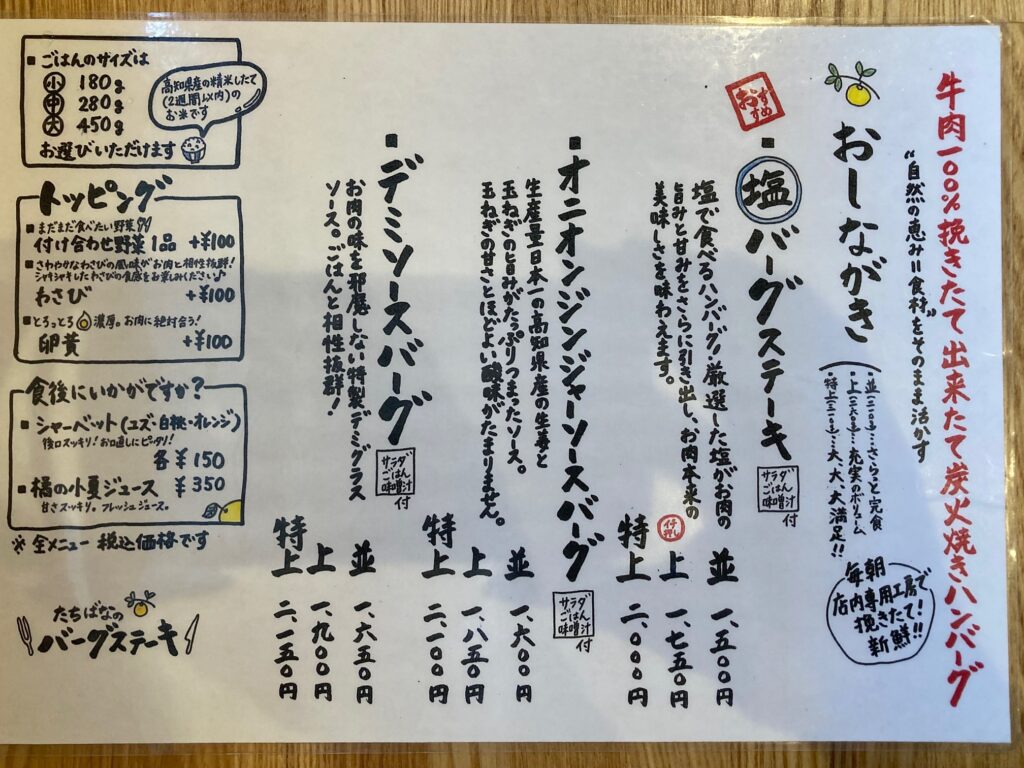 牛肉一〇〇%挽きたて出来たて炭火焼きハンバーグ
"自然の恵み=食材"をそのまま活かす
おしながき
・並
…さらっと完食
・上
…充実のボリューム
・特上
…大、大、大満足!!
毎朝
店内専用工房で
挽きたて!
新鮮!!
おすすめ
■塩バーグステーキ
サラダ
ごはん
味噌汁
付
塩で食べるハンバーグ!厳選した塩がお肉の
旨みと甘みをさらに引き出し、お肉本来の
美味しさを味わえます。
並 一、五〇〇円
イチ押し
上 一、七五〇円
特上 二、〇〇〇円
■オニオンジンジャーソースバーグ
サラダ
ごはん
味噌汁
付
生産量日本一の高知県産の生姜と
玉ねぎの旨みがたっぷりつまったソース。
玉ねぎの甘さとほどよい酸味がたまりません。
並 一、六〇〇円
上 一、八五〇円
特上 二、一〇〇円
■デミソースバーグ
サラダ
ごはん
味噌汁
付
お肉の味を邪魔しない特製デミグラス
ソース。ごはんと相性抜群!
並 一、六五〇円
上 一、九〇〇円
特上 二、一五〇円
■ごはんのサイズは
小 180g
中 280g
大 450g
お選びいただけます
高知県産の精米したて
(2週間以内)の
お米です
トッピング
■まだまだ食べたい野菜
付け合わせ野菜1品 +¥100
■さわやかなわさびの風味がお肉と相性抜群!
シャキシャキしたわさびの食感をお楽しみください♪
わさび +¥100
■とろっとろ濃厚。お肉に絶対合う!
卵黄 +¥100
食後にいかがですか?
■シャーベット(ユズ・白桃・オレンジ)
後口スッキリ!お口直しにピッタリ!
各¥150
■橘の小夏ジュース ¥350
甘さスッキリ。フレッシュジュース。
※全メニュー税込価格です
たちばなの
バーグステーキ